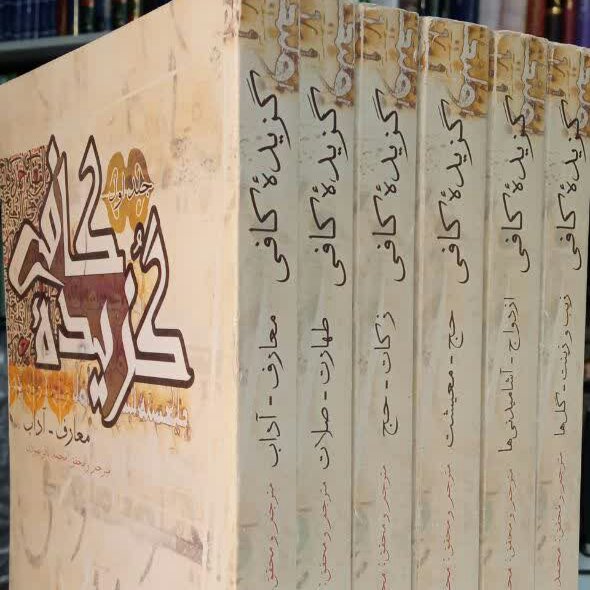 جلد اول
گزیدهٔ کافی
معارف - آداب
مترجم و محقق: محمد باقر بهبودی
گزیدهٔ کافی
معارف - آداب
مترجم و محقق
گزیدهٔ کافی
طهارت - صلات
مترجم و محقق:
گزیدهٔ کافی
زکات - حج
مترجم و محقق:
گزیدهٔ کافی
حج - معیشت
مترجم و محقق:
گزیدهٔ کافی
ازدواج - آشامیدنی‌ها
مترجم و محقق:
گزیدهٔ کافی
زیب و زینت - گل‌ها
مترجم و محقق: محمد